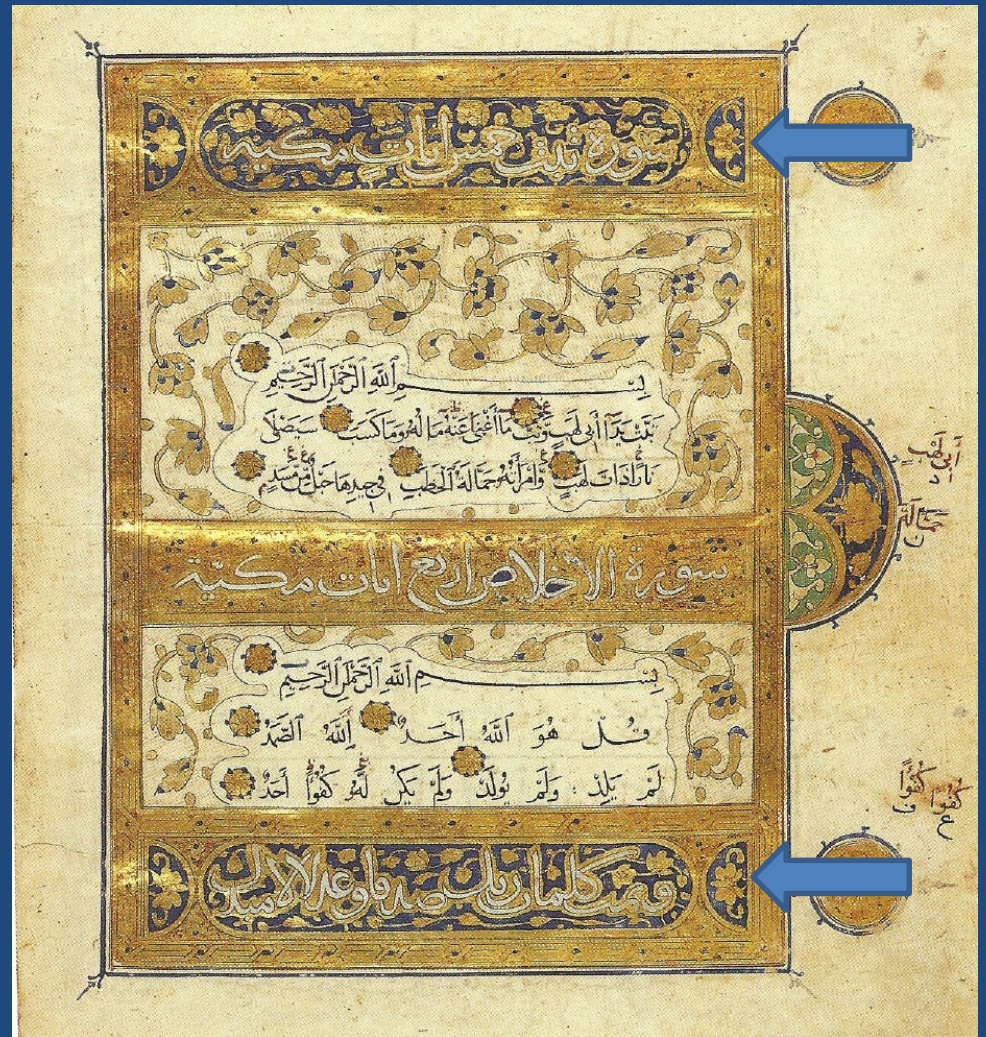 سورة تبت خمس ايات مكية
بِسْمِ ٱللَّهِ ٱلرَّحْمَٰنِ ٱلرَّحِيمِ
تَبَّتْ يَدَآ أَبِى لَهَبٍ وَتَبَّ مَآ أَغْنَىٰ عَنْهُ مَالُهُۥ وَمَا كَسَبَ سَيَصْلَىٰ
نَارًا ذَاتَ لَهَبٍ وَٱمْرَأَتُهُۥ حَمَّالَةَ ٱلْحَطَبِ فِى جِيدِهَا حَبْلٌ مِّن مَّسَدٍ
أَبِى لَهْبٍ
د
حَمَّالَةُ
ن
سورة الاخلاص اربع ايات مكية
بِسْمِ ٱللَّهِ ٱلرَّحْمَٰنِ ٱلرَّحِيمِ
قُلْ هُوَ ٱللَّهُ أَحَدٌ ٱللَّهُ ٱلصَّمَدُ
لَمْ يَلِدْ وَلَمْ يُولَدْ وَلَمْ يَكُن لَّهُۥ كُفُؤًا أَحَدٌ
كُفُوًا
ع
كُفْؤًا
ن
وتمت كلمات ربك صدقا وعدلا لا مبدل